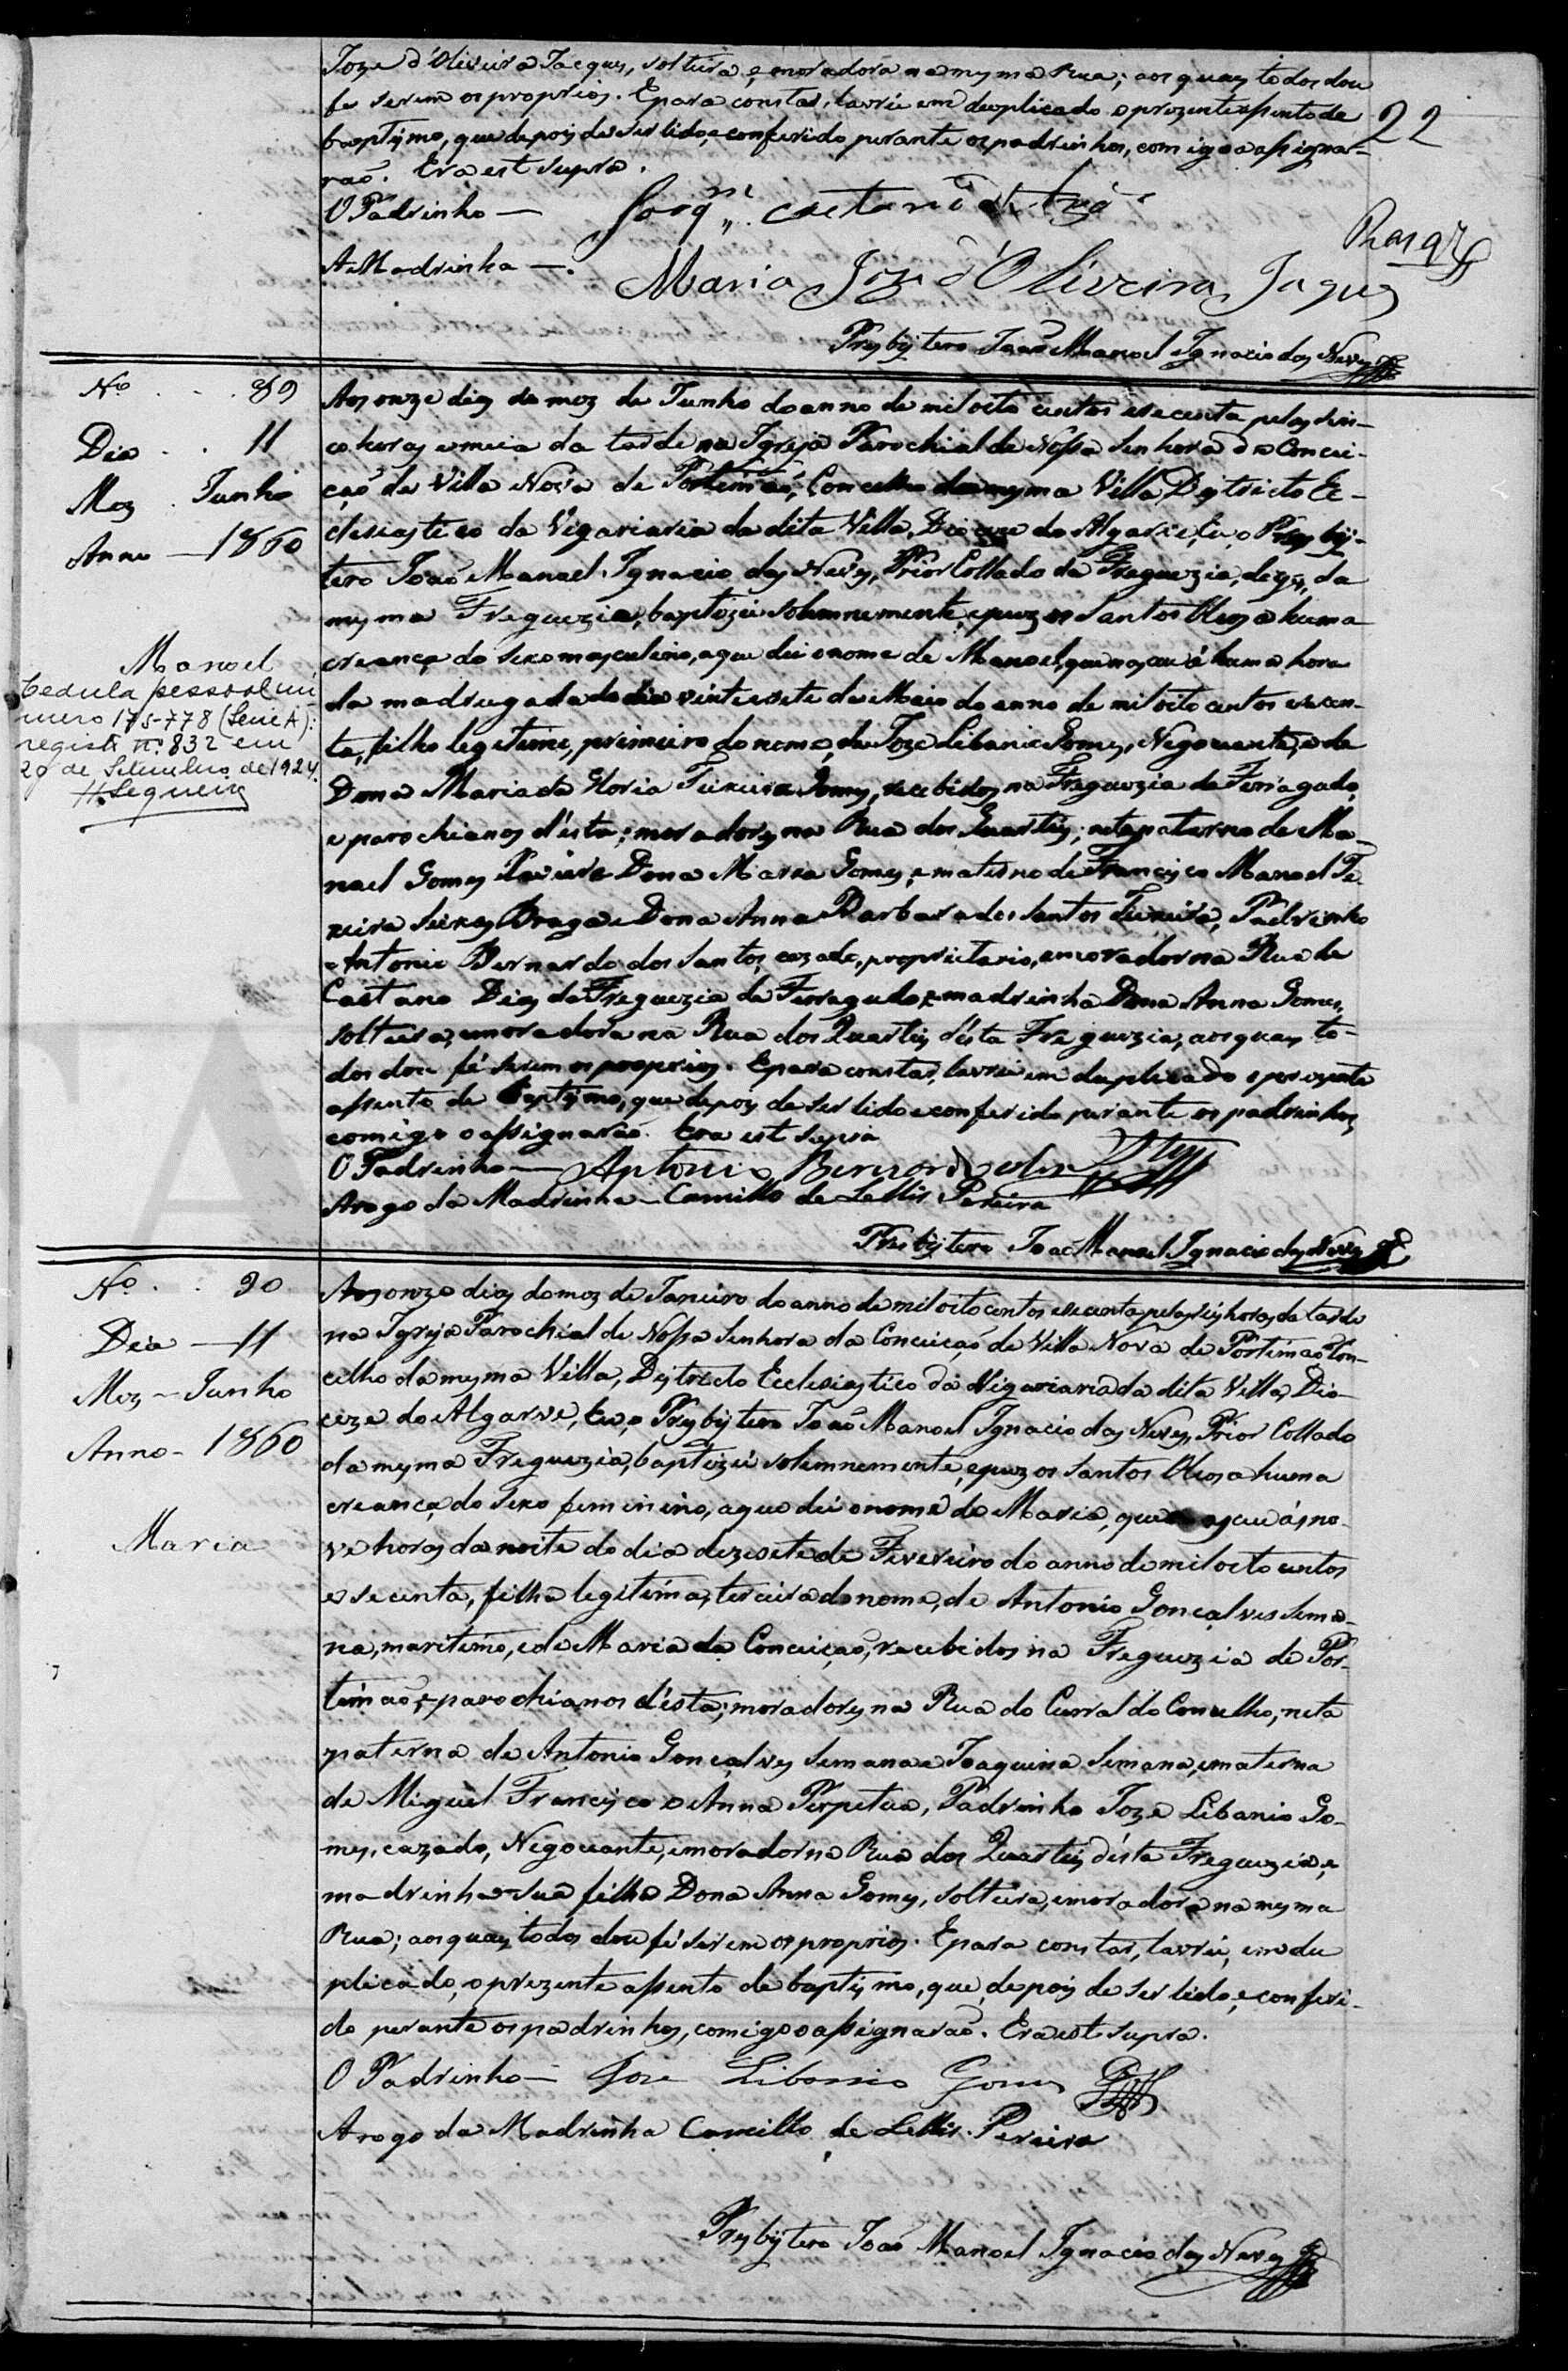 Joze d'Oliveira Jacques, solteira, e moradora na mesma Rua; aos quaes todos dou
fe serem os proprios. E para constar, lavrei em duplicado o prezente assento de
baptismo, que depois de ser lido, e conferido perante os padrinhos, comigo o assigna-
raõ. Era est supra.
22
O Padrinho — Joaq.m Caetano
A Madrinha — Maria Joze d'Oliveira Jaques
Presbytero Joaõ Manoel Ignacio das Neves
Nº . . 89
Dia . . 11
Mez . Junho
Anno — 1860
Manoel
Cedula pessoal nu
mero 175-778 (Serie A):
registo nº 832 em
29 de Setembro de 1924.
H. Sequeira
Aos onze dias do mez de Junho do anno de mil oito centos e secenta pelas sin-
co horas e meia da tarde na Igreja Parochial de Nossa Senhora da Concei-
çaõ de Villa Nova de Portimaõ, Concelho da mesma Villa, Destricto Ec-
clesiastico da Vigariaria da dita Villa, Dioceze do Algarve, Eu, o Presby-
tero Joaõ Manoel Ignacio das Neves, Prior Collado da Freguezia, digo, da
mesma Freguezia, baptizei solemnemente, e puz os Santos Oleos a huma
creança do sexo masculino, a que dei o nome de Manoel, que nasceu á huma hora
da madrugada do dia vinte e sete de Maio do anno de mil oito centos e secen-
ta, filho legitimo, primeiro do nome, de Joze Libanio Gomes, Negociante, e de
Dona Maria da Gloria Teixeira Gomes, recebidos na Freguezia de Ferragudo,
e parochianos d'esta; moradores na Rua dos Quarteis; neto paterno de Ma-
noel Gomes Xavier e Dona Maria Gomes, e materno de Francisco Manoel Te
xeira Seixas Braga e Dona Anna Barbara dos Santos Teixeira, Padrinho
Antonio Bernardo dos Santos, cazado, proprietario, e morador na Rua de
Caetano Dias da Freguezia de Ferragudo, e madrinha Dona Anna Gomes,
solteira, e moradora na Rua dos Quarteis d'esta Freguezia, aos quaes to-
dos dou fé serem os proprios. E para constar, lavrei em duplicado o prezente
assento de baptismo, que depois de ser lido e conferido perante os padrinhos,
comigo o assignaraõ. Era est supra
O Padrinho — Antonio Bernardo dos
Arogo da Madrinha — Camillo de Lellis Pereira
Presbytero Joaõ Manoel Ignacio das Neves
Nº . . 90
Dia — 11
Mez — Junho
Anno - 1860
Maria
Aos onze dias do mez de Janeiro do anno de mil oito centos e secenta pelas seis horas da tarde
na Igreja Parochial de Nossa Senhora da Conceiçaõ de Villa Nova de Portimaõ Con-
celho da mesma Villa, Destricto Ecclesiastico da Vigariaria da dita Villa, Dio-
ceze do Algarve, Eu, o Presbytero Joaõ Manoel Ignacio das Neves, Prior Collado
da mesma Freguezia, baptizei solemnemente, e puz os Santos Oleos, a huma
creança do sexo feminino, a que dei o nome de Maria, que nasceu ás no-
ve horas da noite do dia dezesete de Fevereiro do anno de mil oito centos
e secenta, filha legitima, terceira do nome, de Antonio Gonçalves Sema-
na, maritimo, e de Maria da Conceiçaõ, recebidos na Freguezia de Por-
timaõ, e parochianos d'esta; moradores na Rua do Curral do Concelho, neta
paterna de Antonio Gonçalves Semana e Joaquina Semana, e materna
de Miguel Francisco e Anna Perpetua, Padrinho Joze Libanio Go-
mes, cazado, Negociante, e morador na Rua dos Quarteis d'esta Freguezia, e
madrinha sua filha Dona Anna Gomes, solteira, e moradora na mesma
Rua; aos quaes todos dou fé serem os proprios. E para constar, lavrei, em du
plicado, o prezente assento de baptismo, que, depois de ser lido, e conferi-
do perante os padrinhos, comigo o assignaraõ. Era est supra.
O Padrinho — Joze Libanio Gomes
Arogo da Madrinha Camillo de Lellis Pereira
Presbytero Joaõ Manoel Ignacio das Neves